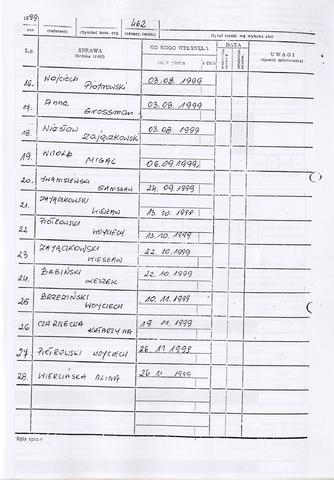 1899
462
rok (referent) (symbol kom. org.
L.p. SPRAWA OD KOGO WPŁYNĘŁA DATA UWAGI
(krótka treść) znak pisma z dnia
16. Wojciech Piotrowski 03.08.1999
17. Anna Grossman 03.08.1999
18. Wiesław Zajączkowsk 03.08.1999
19. Witold MIGAC 06.09.1999
20. IWANISZEWSKI STANISŁAW 24.09.1999
21. ZAJĄCZKOWSKI WIESŁAW 13.10.1999
22 PIOTROWSKI WOJCIECH 13.10.1999
23 ZAJĄCZKOWSKI WIESŁAW 22.10.1999
24. BABIŃSKI LESZEK 22.10.1999
25 BRZEZIŃSKI WOJCIECH 10.11.1999
26 CZARNECKA KATARZYNA 19 11.1999
27. PIOTROWSKI WOJCIECH 26.11.1999
28. WIERCIŃSKA ALINA 26 11 1999
Spis spraw